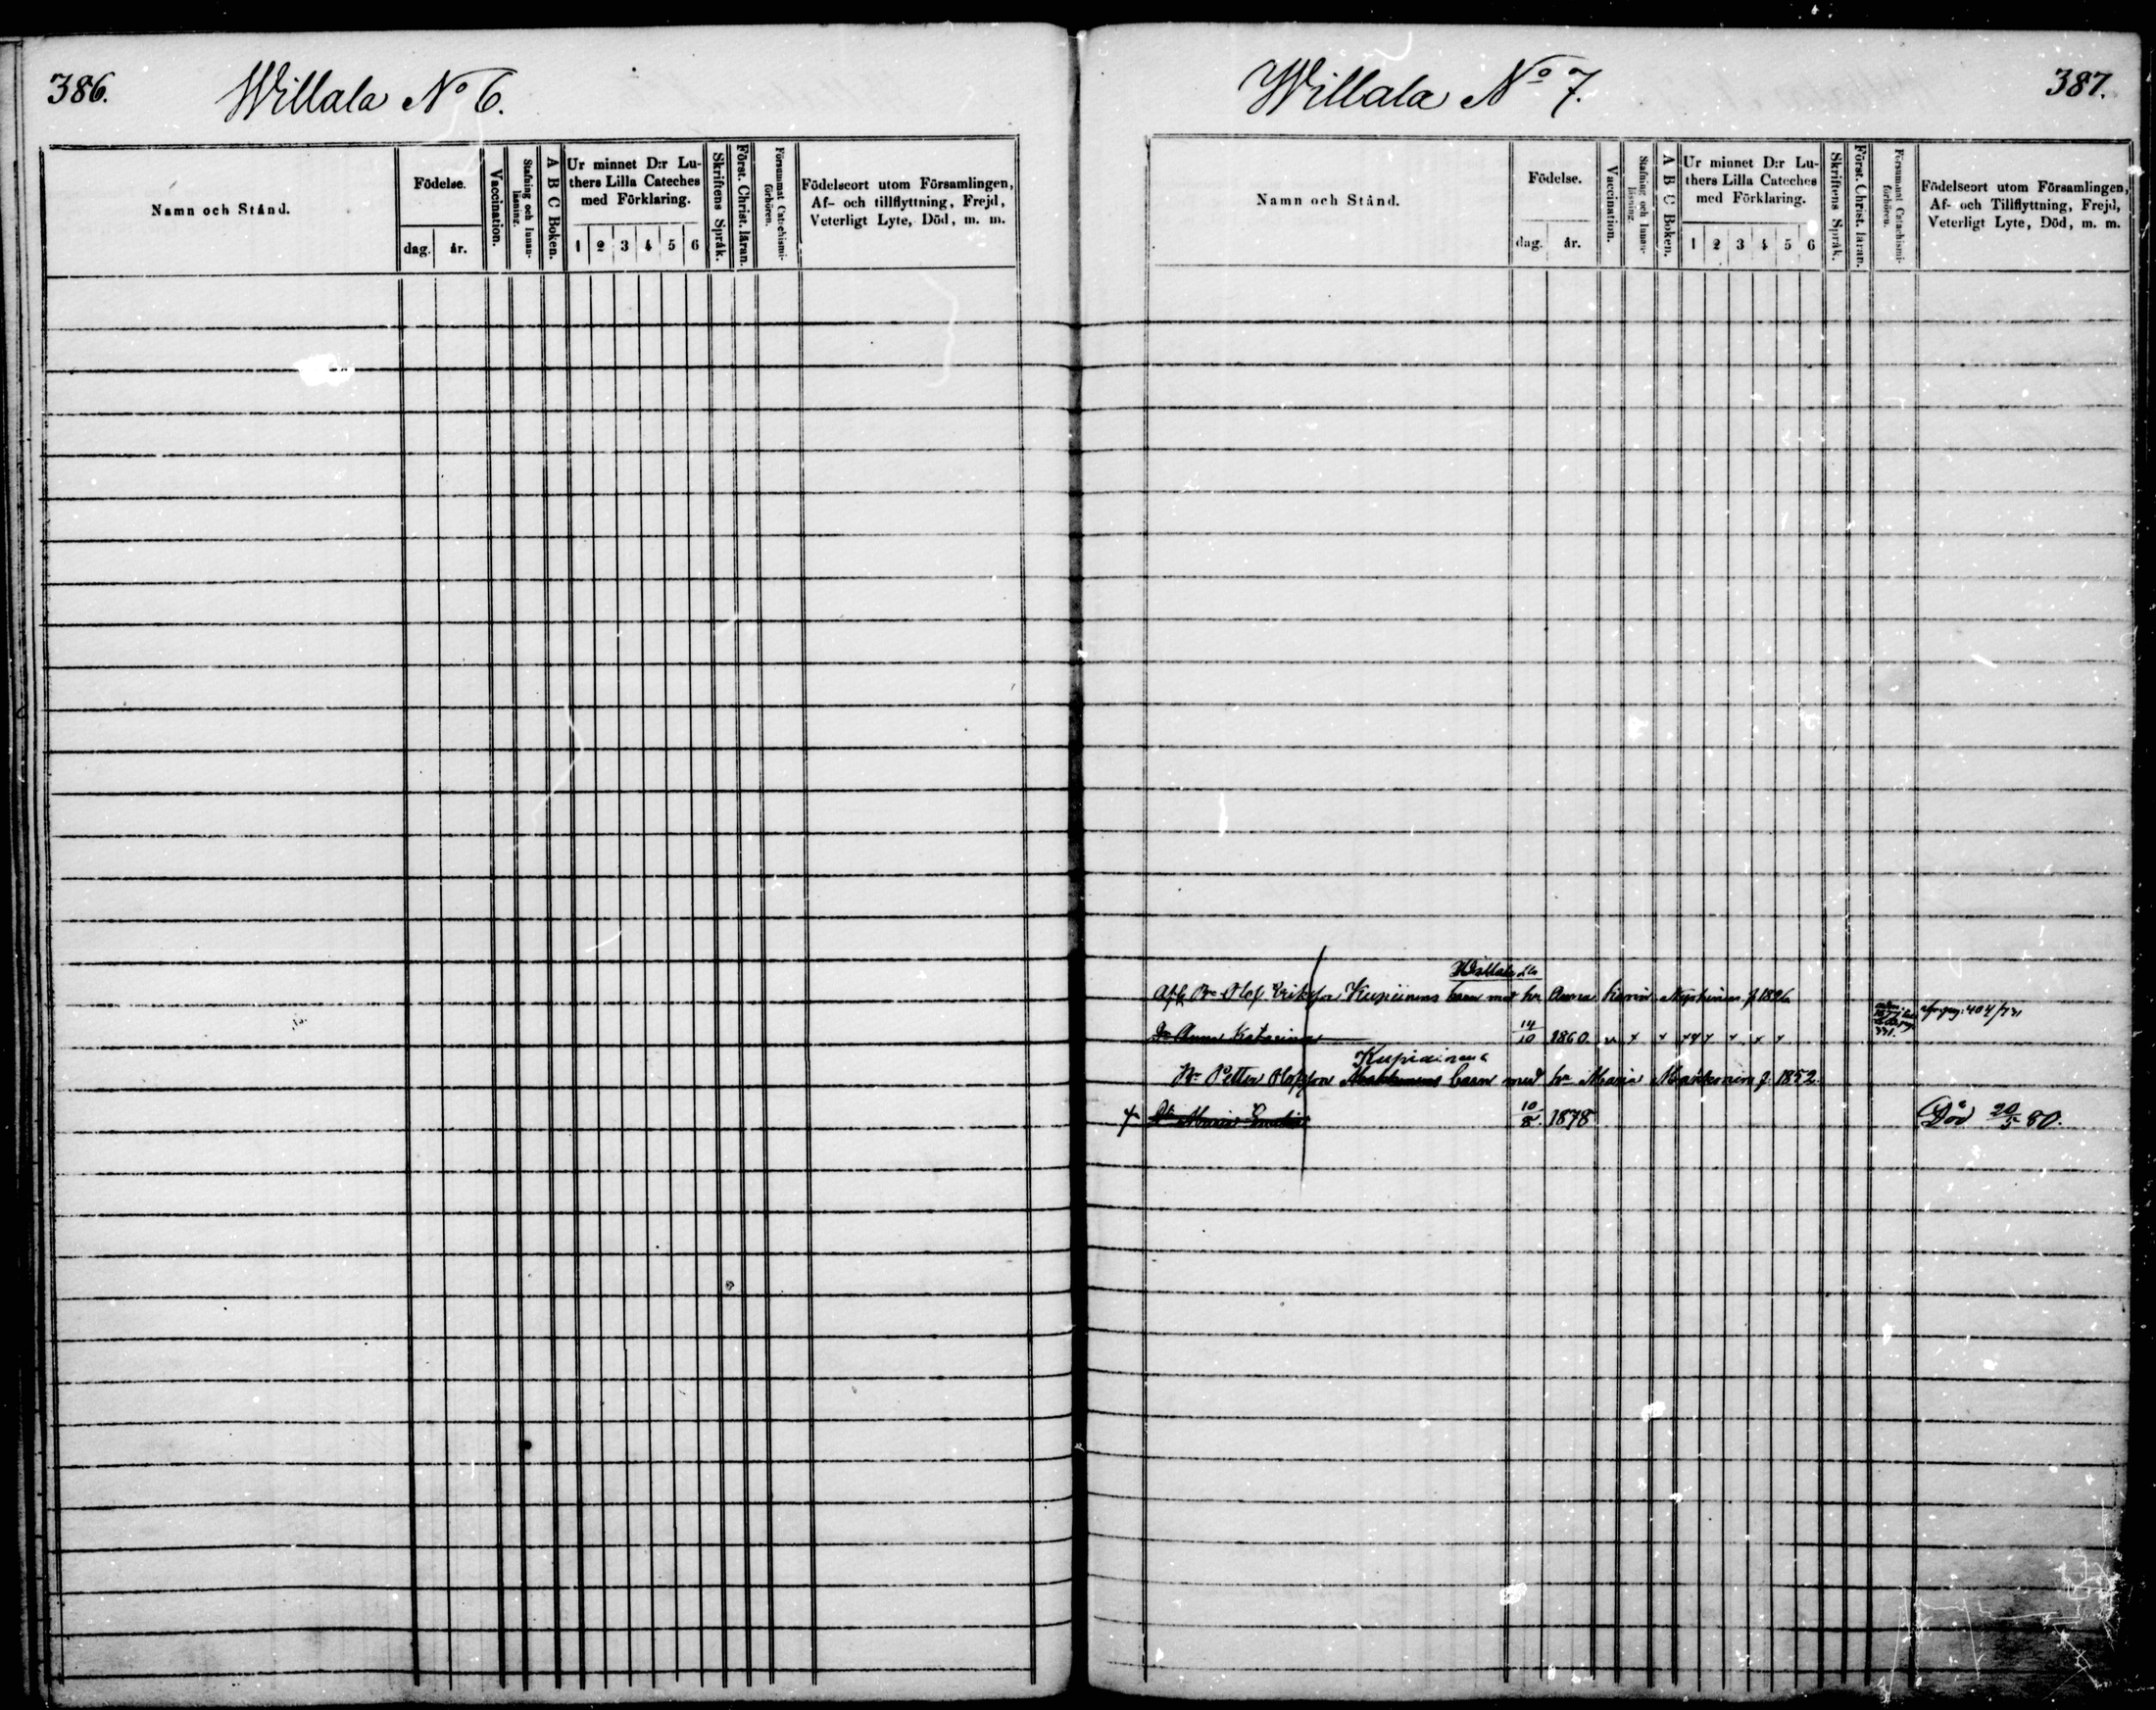 386.
Willala No 6.
Namn och Stånd.
Födelse.
dag. år.
Vaccination.
Stafning och Innan-läsning.
A B C Boken.
Ur minnet D:r Lu-
thers Lilla Cateches
med Förklaring.
1 2 3 4 5 6
Skriftens Språk.
Först. Christ. läran.
Försummat Catechismi-förhören.
Födelseort utom Församlingen,
Af- och tillflyttning, Frejd,
Veterligt Lyte, Död, m. m.
Willala No 7.
387.
Namn och Stånd.
Födelse.
dag. år.
Vaccination.
Stafning och Innan-läsning.
A B C Boken.
Ur minnet D:r Lu-
thers Lilla Cateches
med Förklaring.
1 2 3 4 5 6
Skriftens Språk.
Först. Christ. läran.
Försummat Catechismi-förhören.
Födelseort utom Församlingen,
Af- och Tillflyttning, Frejd,
Veterligt Lyte, Död, m. m.
Willala
Olof Eriksson Kupiainens barn med hu Anna Karin f 1826
Anna Katarina 14/10 1860
Kupiainens
Petter Olofsson barn med hu Maria f. 1852.
Maria 10/8 1878 Död 20/5 80.